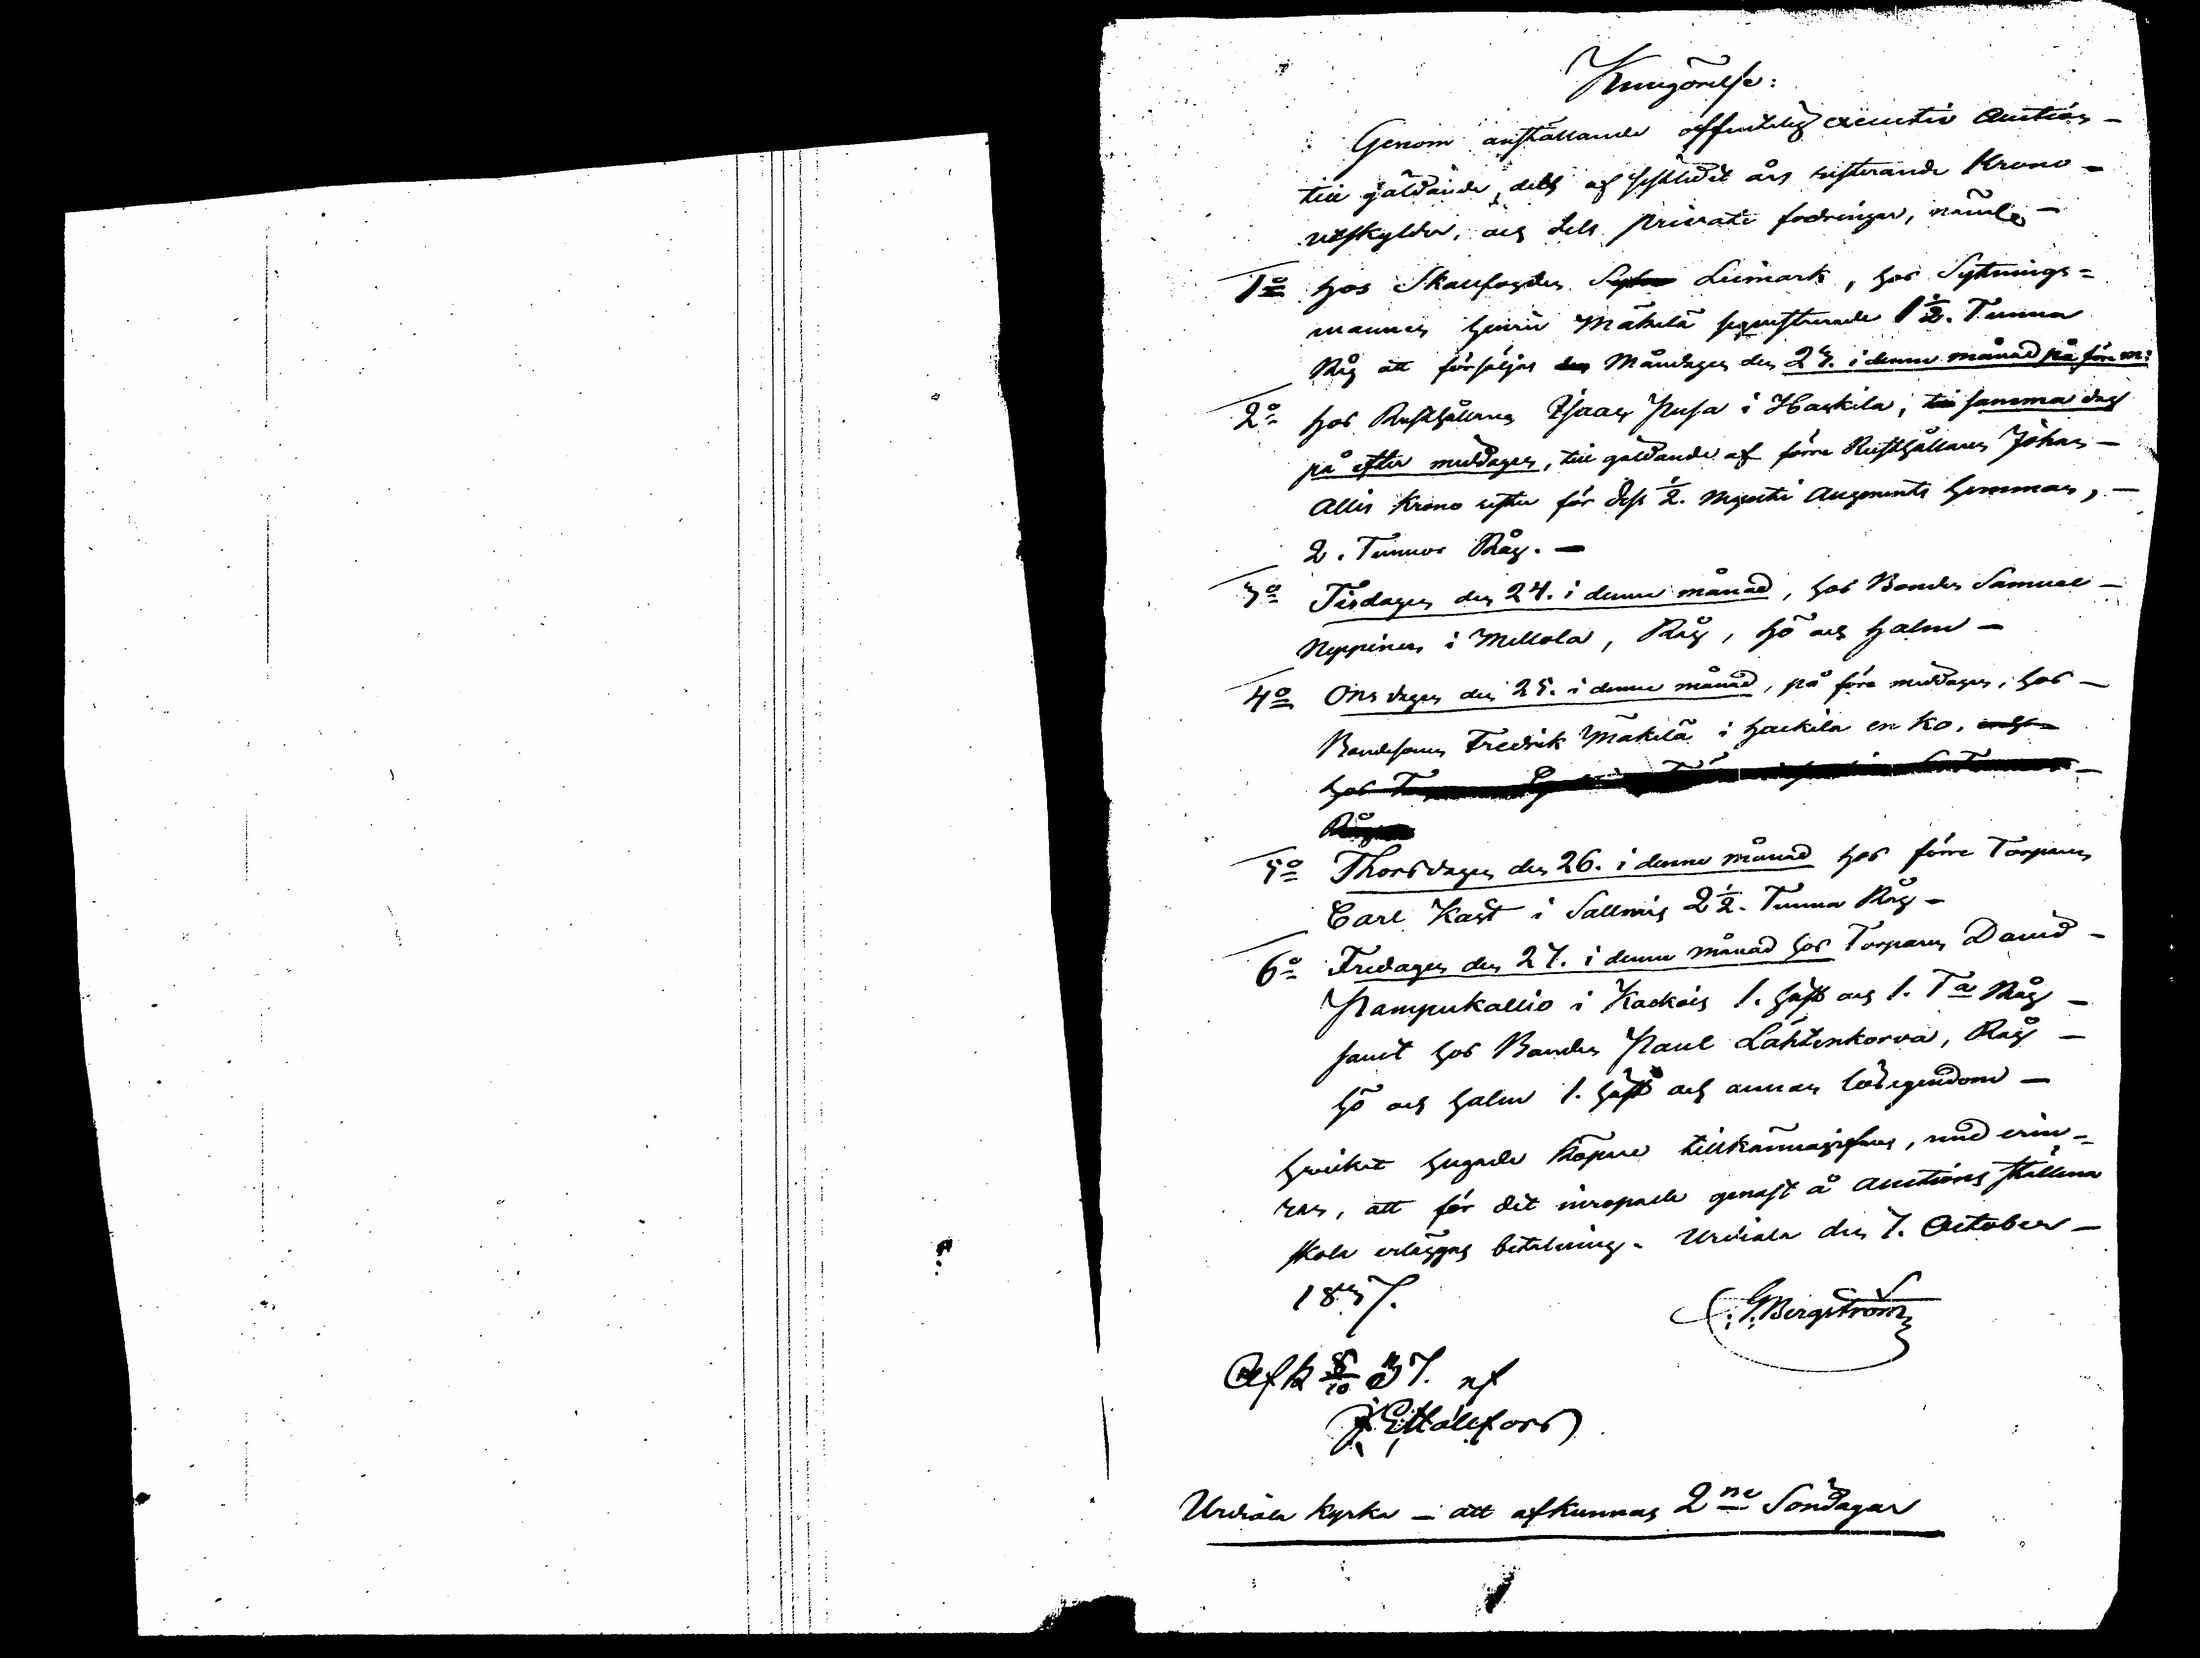 Kungörelse:
Genom anställande offentelig executiv Auction
till gäldande, dels af sistledit års resterande Krono
utskylder, och dels private fodringar, näml.
1o hos Skallfogden Leimark, hos Sytnings=
mannen Henric Mäkelä sequestrerade 1 1/2. Tunna
Råg att försäljas Måndagen den 23. i denna månad på förem:
2o hos Rusthållaren Isaac Pusa i Hackila, samma dag
på efter middagen, till gäldande af förre Rusthållaren Johan
Allis Krono rester för dess 1/2. Augments hemman,
2. Tunnor Råg. —
3o Tisdagen den 24. i denna månad, hos Bonden Samuel
Neppinen i Mellola, Råg, hö och halm —
4o Onsdagen den 25. i denna månad, på före middagen, hos
Bondesonen Fredrik Mäkelä i Hackila en Ko.
hos
Råg
5o Thorsdagen den 26. i denna månad hos förre Torparen
Carl Kast i Sallmis 2 1/2. Tunna Råg —
6o Fredagen den 27. i denna månad hos Torparen David
Pampukallio i Kackois 1. häst och 1. Ta Råg
samt hos Bonden Paul Lähtenkorva, Råg
hö och halm 1. häst och annan lösegendom —
hvilket hugade köpare tillkännagifves, med erin-
ran, att för det inropade genast å auctions ställena
skola erläggas betalning. Urdiala den 7. October
1837.
G. Bergström
Afk 8/10 37. af
Urdiala kyrka — att afkunnas 2ne Söndagar